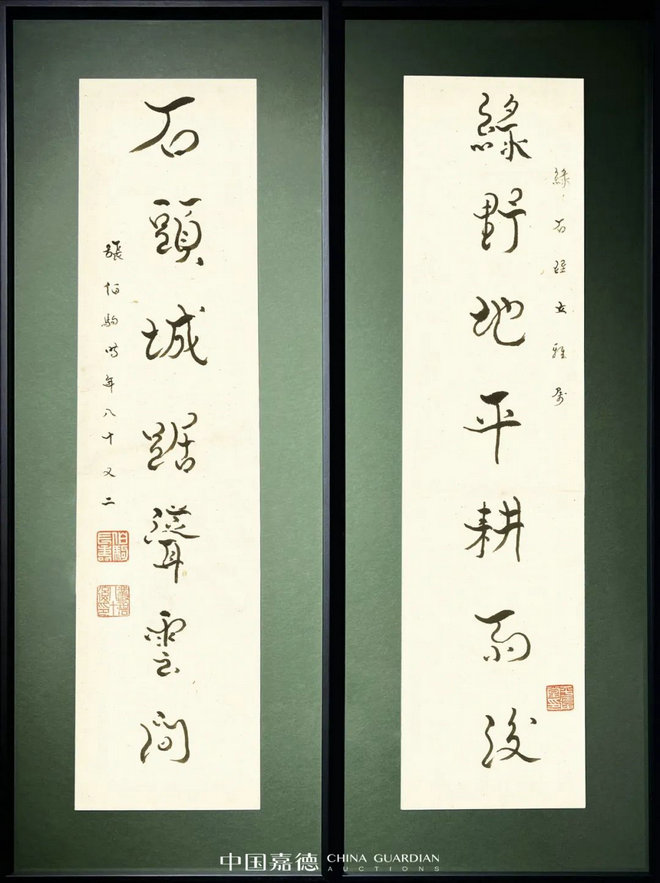 綠野地平耕雨後
綠石 雅屬
石頭城踞聳雲間
張伯駒時年八十又二
伯駒長壽
中国嘉德 CHINA GUARDIAN
AUCTIONS